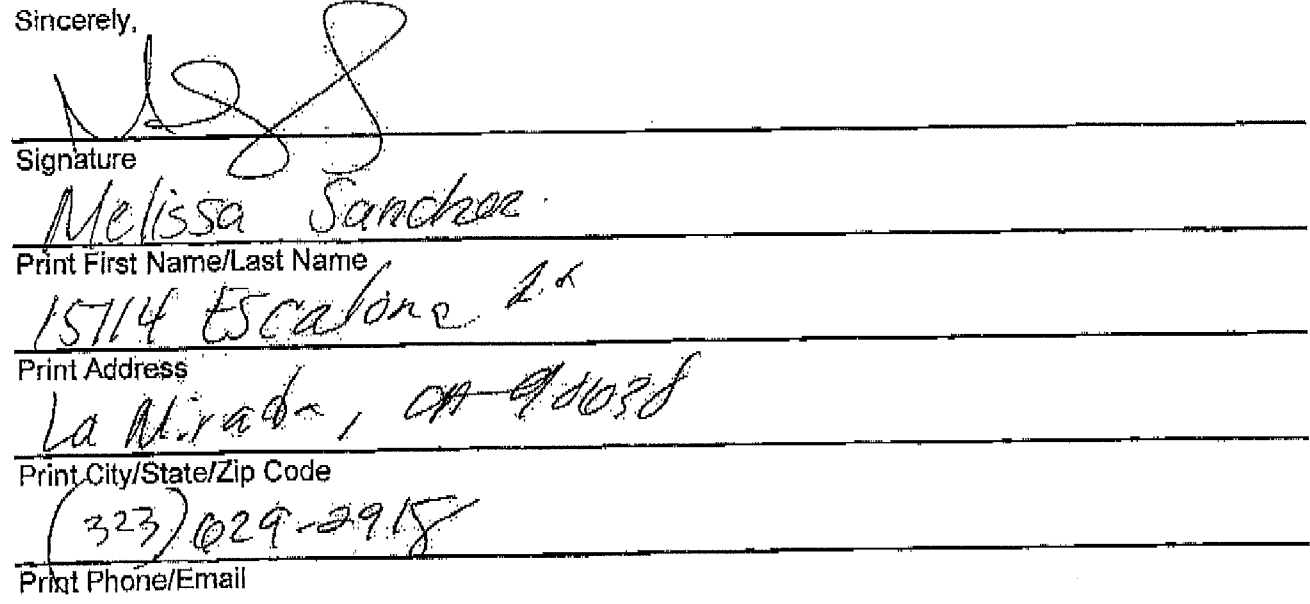 Sincerely,
Signature
Melissa Sanchez
Print First Name/Last Name
15714 Escalona
Print Address
La Mirada, CA 90638
Print City/State/Zip Code
(323) 629-2915
Print Phone/Email